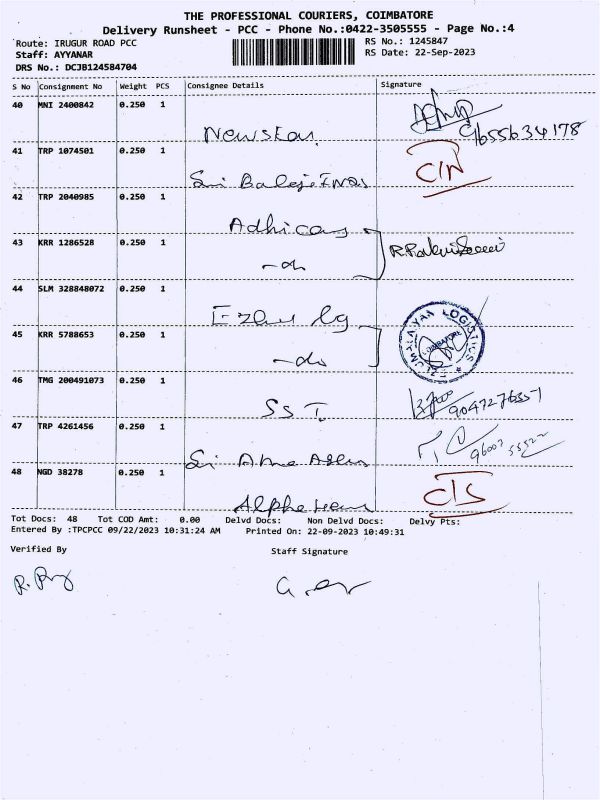 THE PROFESSIONAL COURIERS, COIMBATORE
Delivery Runsheet - PCC - Phone No.:0422-3505555 - Page No.:4
Route: IRUGUR ROAD PCC RS No.: 1245847
Staff: AYYANAR RS Date: 22-Sep-2023
DRS No.: DCJB124584704
S No Consignment No Weight PCS Consignee Details Signature
40 MNI 2400842 0.250 1
Newstar 9655634178
41 TRP 1074501 0.250 1
Sri Balaji
42 TRP 2040985 0.250 1
Adhi
43 KRR 1286528 0.250 1
-do
44 SLM 328848072 0.250 1
EZHUMALAIYAN LOGISTICS
COIMBATORE
45 KRR 5788653 0.250 1
-do
46 TMG 200491073 0.250 1
SST
47 TRP 4261456 0.250 1
Sri
48 NGD 38278 0.250 1
Alpha
Tot Docs: 48 Tot COD Amt: 0.00 Delvd Docs: Non Delvd Docs: Delvy Pts:
Entered By :TPCPCC 09/22/2023 10:31:24 AM Printed On: 22-09-2023 10:49:31
Verified By Staff Signature